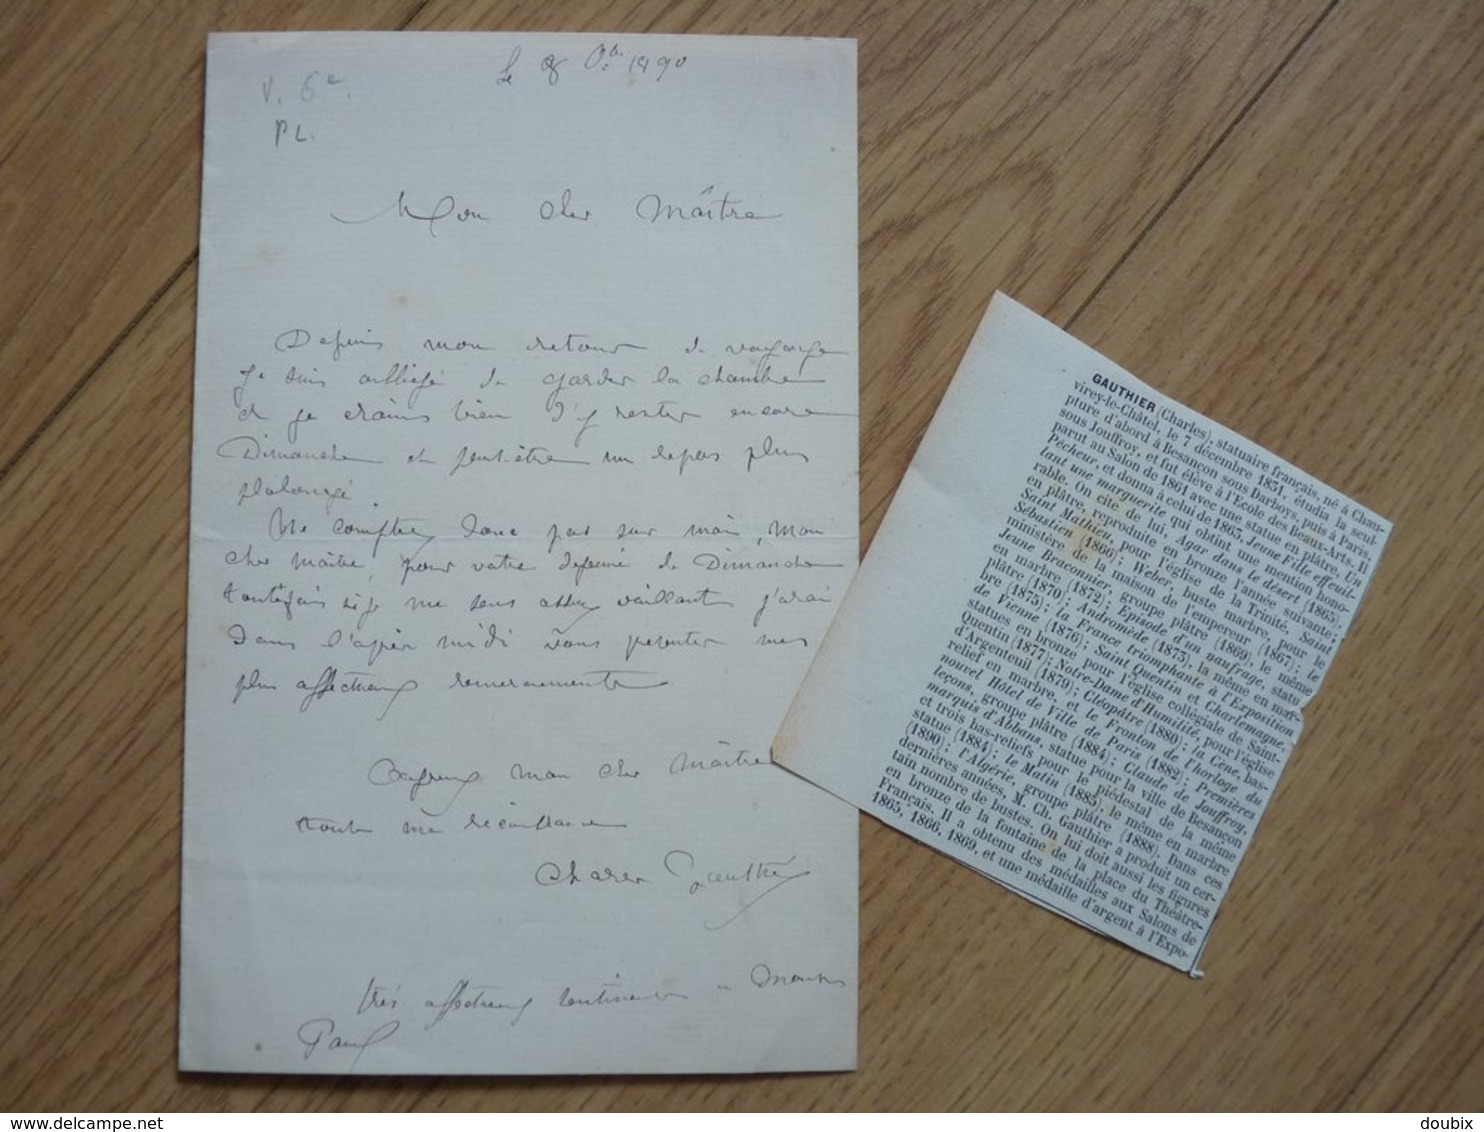 Le 8 8bre 1890
V. 6e.
PL.
Mon cher Maître
Depuis mon retour de voyage
je suis obligé de garder la chambre
et je crains bien d'y rester encore
Dimanche et peut-être un repos plus
prolongé.
Ne comptez donc pas sur moi, mon
cher Maître, pour votre déjeuné de Dimanche
toutefois si je me sens assez vaillant j'irai
dans l'après midi vous présenter mes
plus affectueux remerciements
Agréez mon cher Maître
toute ma
Charles Gauthier
très affectueux sentiments a
Paul
GAUTHIER (Charles), statuaire français, né à Chau-
virey-le-Châtel, le 7 décembre 1831, étudia la sculp-
pture d'abord à Besançon sous Darboys, puis à Paris,
sous Jouffroy, et fut élève à l'Ecole des Beaux-Arts. Il
parut au Salon de 1861 avec une statue en plâtre, Un
Pêcheur, et donna à celui de 1863, Jeune Fille effeuil-
lant une marguerite qui obtint une mention hono-
rable. On cite de lui, Agar dans le désert (1865),
en plâtre, reproduite en bronze l'année suivante;
Saint Mathieu, pour l'église de la Trinité, Saint
Sébastien (1866); Weber, buste marbre, pour le
ministère de la maison de l'empereur (1867); le
Jeune Braconnier, groupe plâtre (1869), le même
en marbre (1872); Episode d'un naufrage, statue
plâtre (1870); Andromède (1873), la même en mar-
bre (1875); la France triomphante à l'Exposition
de Vienne (1876); Saint Quentin et Charlemagne,
statues en bronze pour l'église collégiale de Saint-
Quentin (1877); Notre-Dame d'Humilité, pour l'église
d'Argenteuil (1879); Cléopâtre (1880); la Cène, bas-
relief en marbre, et le Fronton de l'horloge du
nouvel Hôtel de Ville de Paris (1882); Premières
leçons, groupe plâtre (1884); Claude de Jouffroy,
marquis d'Abbans, statue pour la ville de Besançon
et trois bas-reliefs pour le piédestal de la même
statue (1884); le Matin (1885), le même en marbre
(1890); l'Algérie, groupe plâtre (1888). Dans ces
dernières années, M. Ch. Gauthier a produit un cer-
tain nombre de bustes. On lui doit aussi les figures
en bronze de la fontaine de la place du Théâtre-
Français. Il a obtenu des médailles aux Salons de
1865, 1866, 1869, et une médaille d'argent à l'Expo-
delcampe.net
doubix